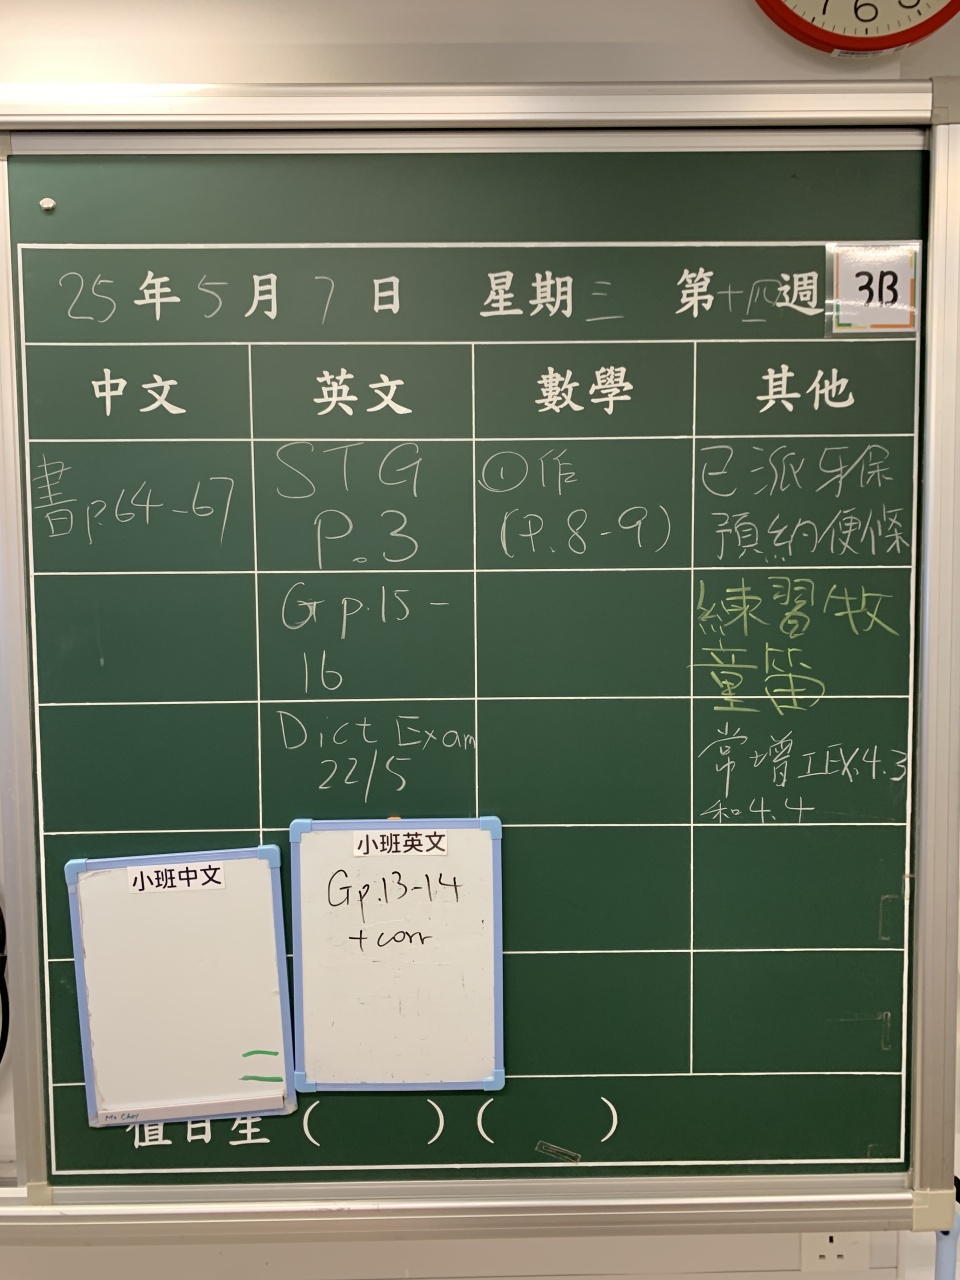 7 6 5
25年5月7日 星期三 第十四週
3B
中文 英文 數學 其他
書p.64-67
STG
P.3
①作
(P.8-9)
已派牙保
預約便條
Gp.15-
16
練習牧
童笛
Dict Exam
22/5
常增工EX.4.3
和4.4
小班中文
小班英文
Gp.13-14
+corr
Ms Choy
值日生( )( )